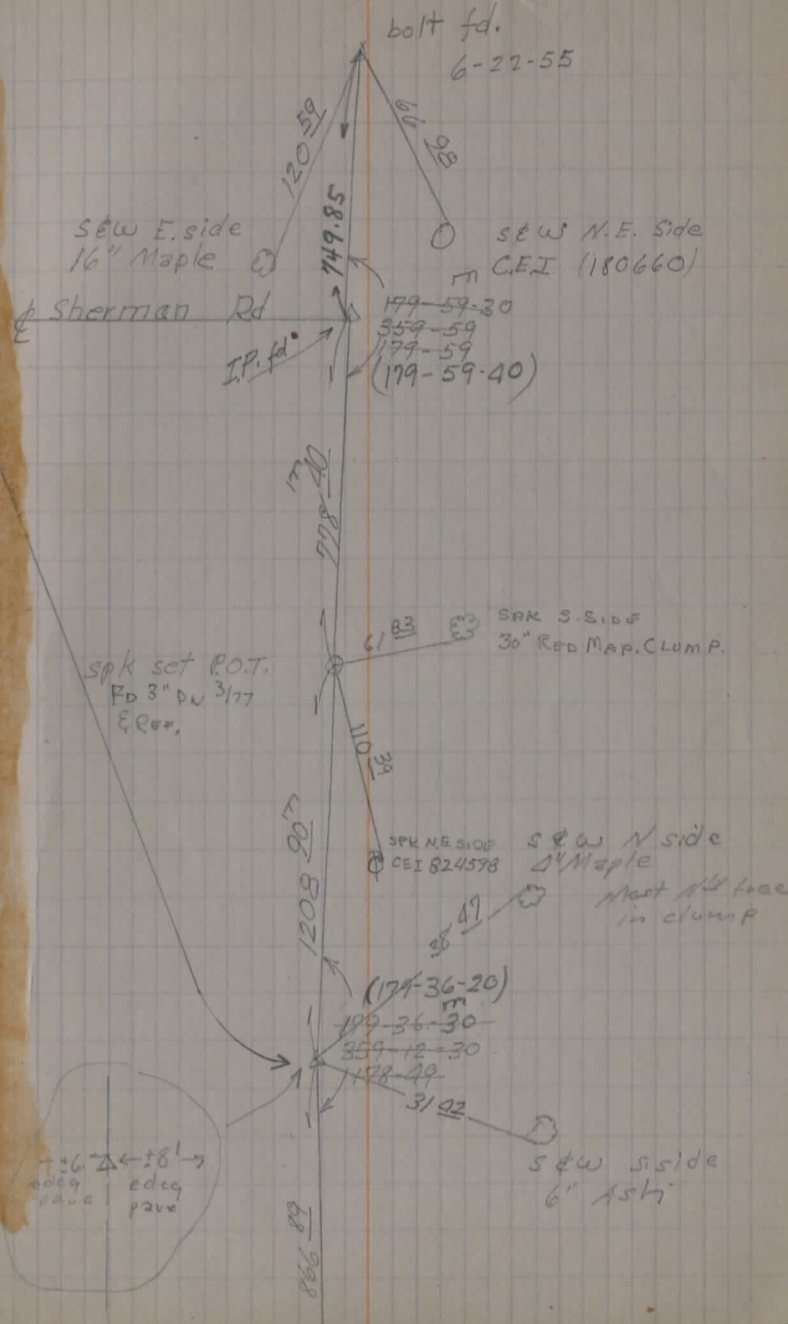 bolt fd.
6-22-55
120 59
66 98
749.85
S&W E. side
16" Maple
S&W N.E. Side
C.E.I (180660)
℄ Sherman Rd
E
179-59-30
359-59
179-59
(179-59-40)
I.P. fd
778 40
61 83
SPK S. SIDE
30" RED MAP. CLUMP.
spk set P.O.T.
FD 3" DN 3/77
& REF.
110 39
1208 90
SPK N.E. SIDE
CEI 824598
S&W N side
4" Maple
Most N'ly tree
in clump
38 47
(179-36-20)
E
179-36-30
359-12-30
178-49
31 02
S&W S side
6" Ash
±6 ±8'
edeg edeg
pave pave
866 89